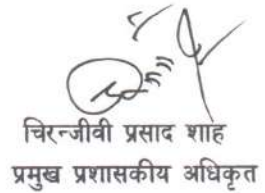 चिरन्जीवी प्रसाद शाह
प्रमुख प्रशासकीय अधिकृत